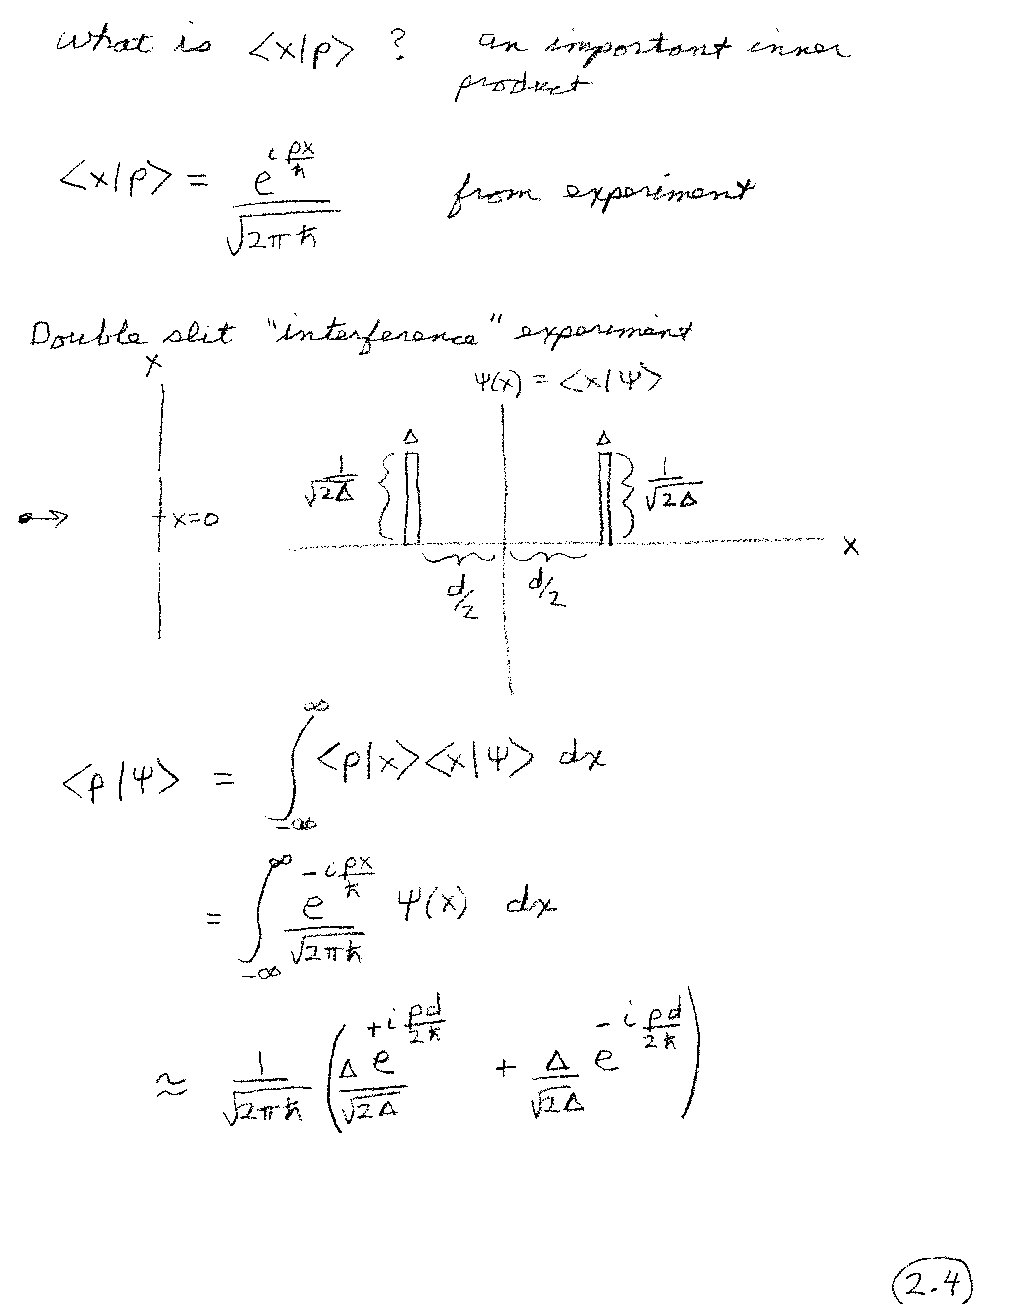 What is <x|p> ? an important inner
product
<x|p> = e^{i px/ħ} / √(2πħ) from experiment
Double slit "interference" experiment
x
ψ(x) = <x|ψ>
Δ Δ
1/√(2Δ) 1/√(2Δ)
x=0
x
d/2 d/2
<p|ψ> = ∫_{-∞}^{∞} <p|x><x|ψ> dx
= ∫_{-∞}^{∞} e^{-i px/ħ} / √(2πħ) ψ(x) dx
≈ 1/√(2πħ) ( Δ e^{+i pd/2ħ} / √(2Δ) + Δ/√(2Δ) e^{-i pd/2ħ} )
2.4